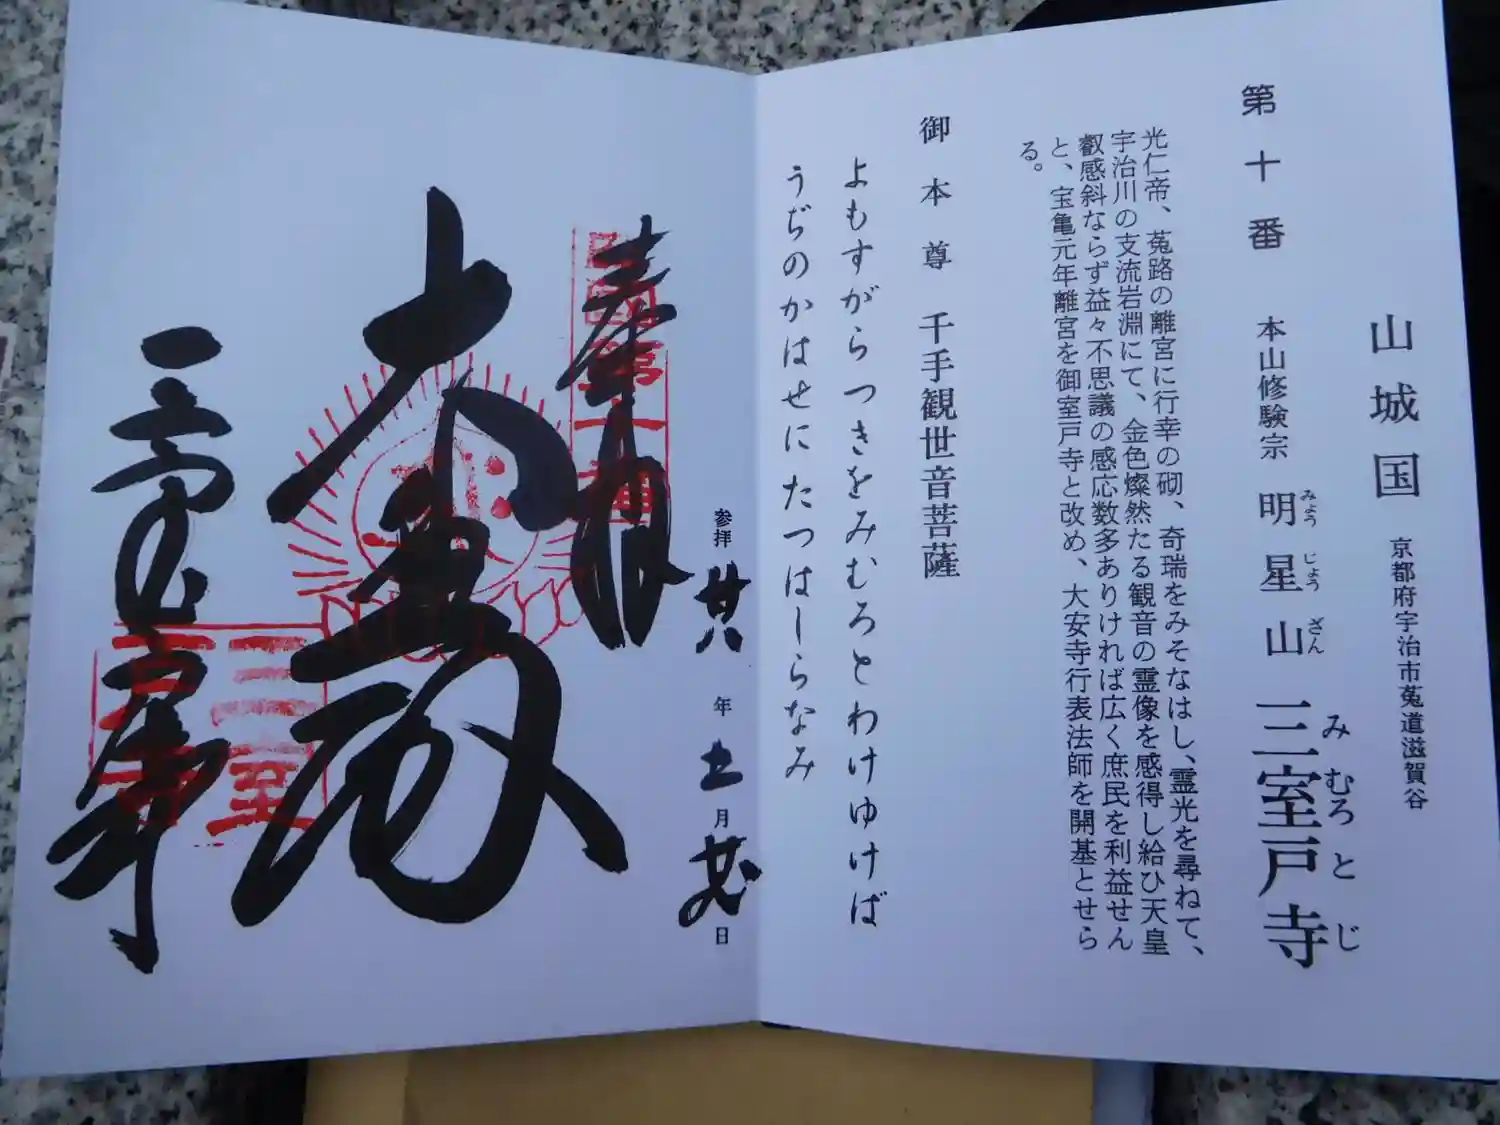 山城国 京都府宇治市菟道滋賀谷
第十番 本山修験宗 明星山 三室戸寺
みょう じょう ざん みむろとじ
光仁帝、菟路の離宮に行幸の砌、奇瑞をみそなはし、霊光を尋ねて、
宇治川の支流岩淵にて、金色燦然たる観音の霊像を感得し給ひ天皇
叡感斜ならず益々不思議の感応数多ありければ広く庶民を利益せん
と、宝亀元年離宮を御室戸寺と改め、大安寺行表法師を開基とせら
る。
御本尊 千手観世音菩薩
よもすがらつきをみむろとわけゆけば
うぢのかはせにたつはしらなみ
参拝 廿八 年 十一 月 廿 日
奉拝
三室戸寺